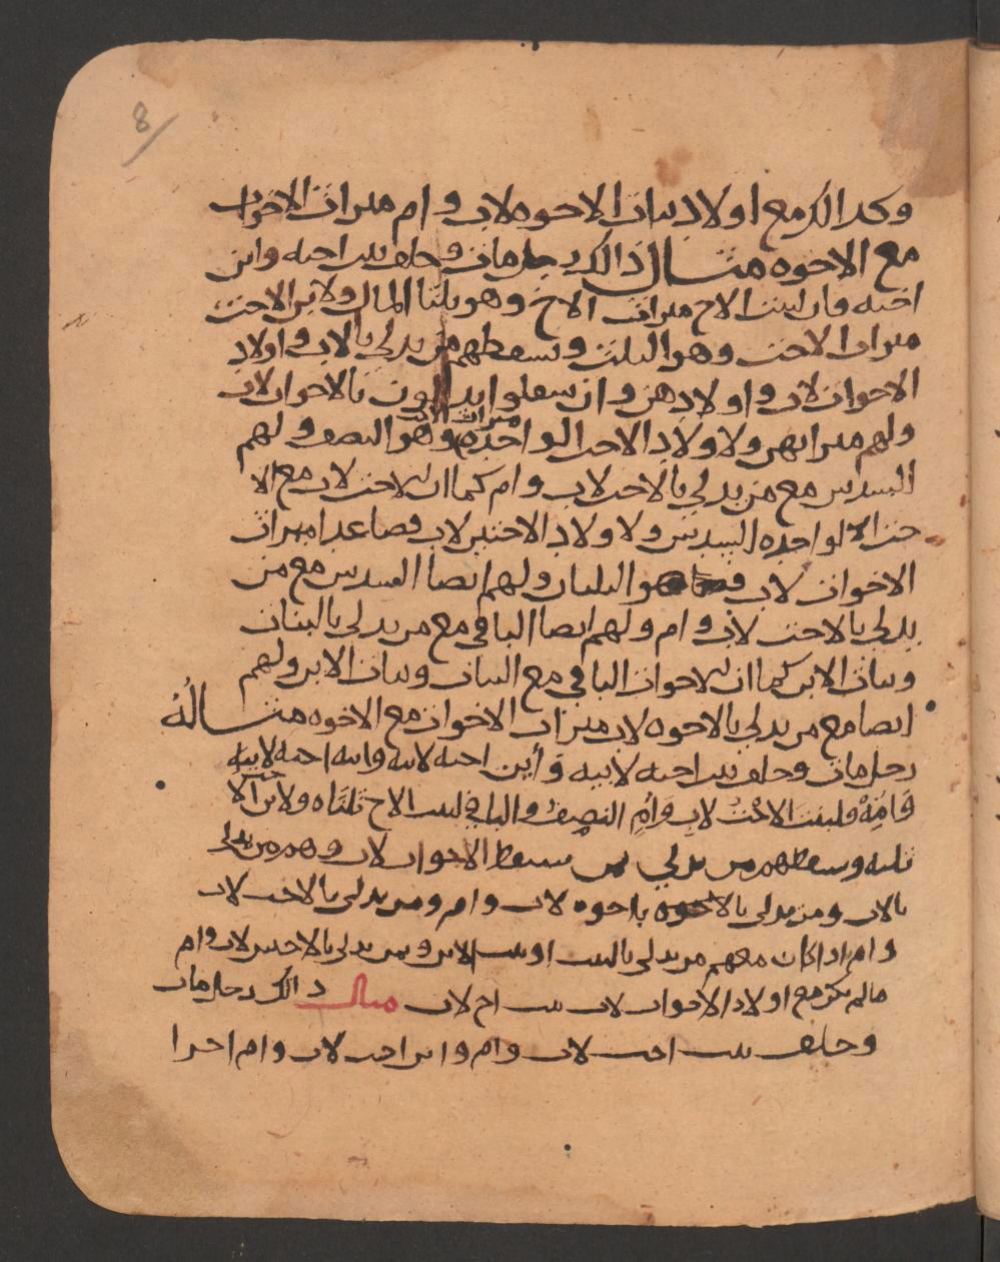 8
وكذالك مع اولاد بنات الاخوه لاب وام ميراث الاخوات
مع الاخوه مثال ذالك رجل مات وخلف بنت اخيه وابن
اخته فان لبنت الاخ ميراث الاخ وهو ثلثا المال ولابن الاخت
ميراث الاخت وهو الثلث ويسقطهم من يدلي بالاب واولاد
الاخوات لاب واولادهن وان سفلوا يدلون بالاخوات لاب
ولهم ميراثهن ولاولاد الاخت الواحده ميراث الاخت وهو النصف ولهم
السدس مع من يدلي بالاخت لاب وام كما ان للاخت لاب مع الا
خت الواحده السدس ولاولاد الاختين لاب فصاعدا ميراث
الاخوات لاب وهو الثلثان ولهم ايضا السدس مع من
يدلي بالاخت لاب وام ولهم ايضا الباقي مع من يدلي بالبنات
وبنات الابن كما ان للاخوات الباقي مع البنات وبنات الابن ولهم
ايضا مع من يدلي بالاخوه لاب ميراث الاخوات مع الاخوه مثاله
رجل مات وخلف بنت اخيه لابيه وابن اخته لابيه وابنه اخته لابيه
وامه فلبنت الاخت لاب وام النصف والباقي لبنت الاخ ثلثاه ولابن الاخت
ثلثه ويسقطهم من يدلي بمن يسقط الاخوات لاب وهم من يدلي
بالاب ومن يدلي بالاخوه لاب وام ومن يدلي بالاخت لاب
وام اذا كان معهم من يدلي بالبنت او بنت الابن ومن يدلي بالاختين لاب وام
مالم يكن مع اولاد الاخوات لاب بنت اخ لاب مثال ذالك رجل مات
وخلف بنت اخت لاب وام وابن اخت لاب وام اخرا